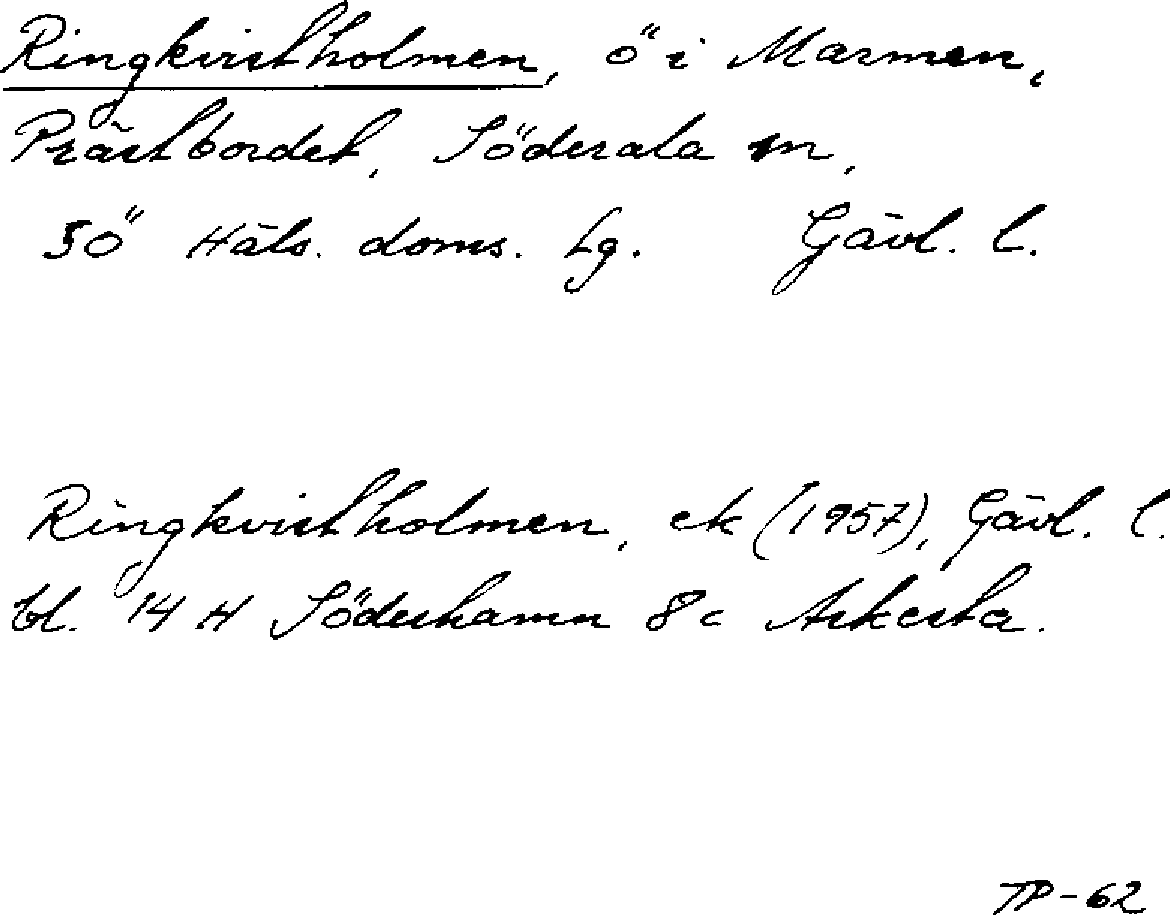 Ringkvistholmen, ö i Marmen,
Prästbordet, Söderala sn,
SÖ Häls. doms. lg. Gävl. l.
Ringkvistholmen, ek (1957), Gävl. l.
bl. 14 H Söderhamn 8c Askesta.
TP-62